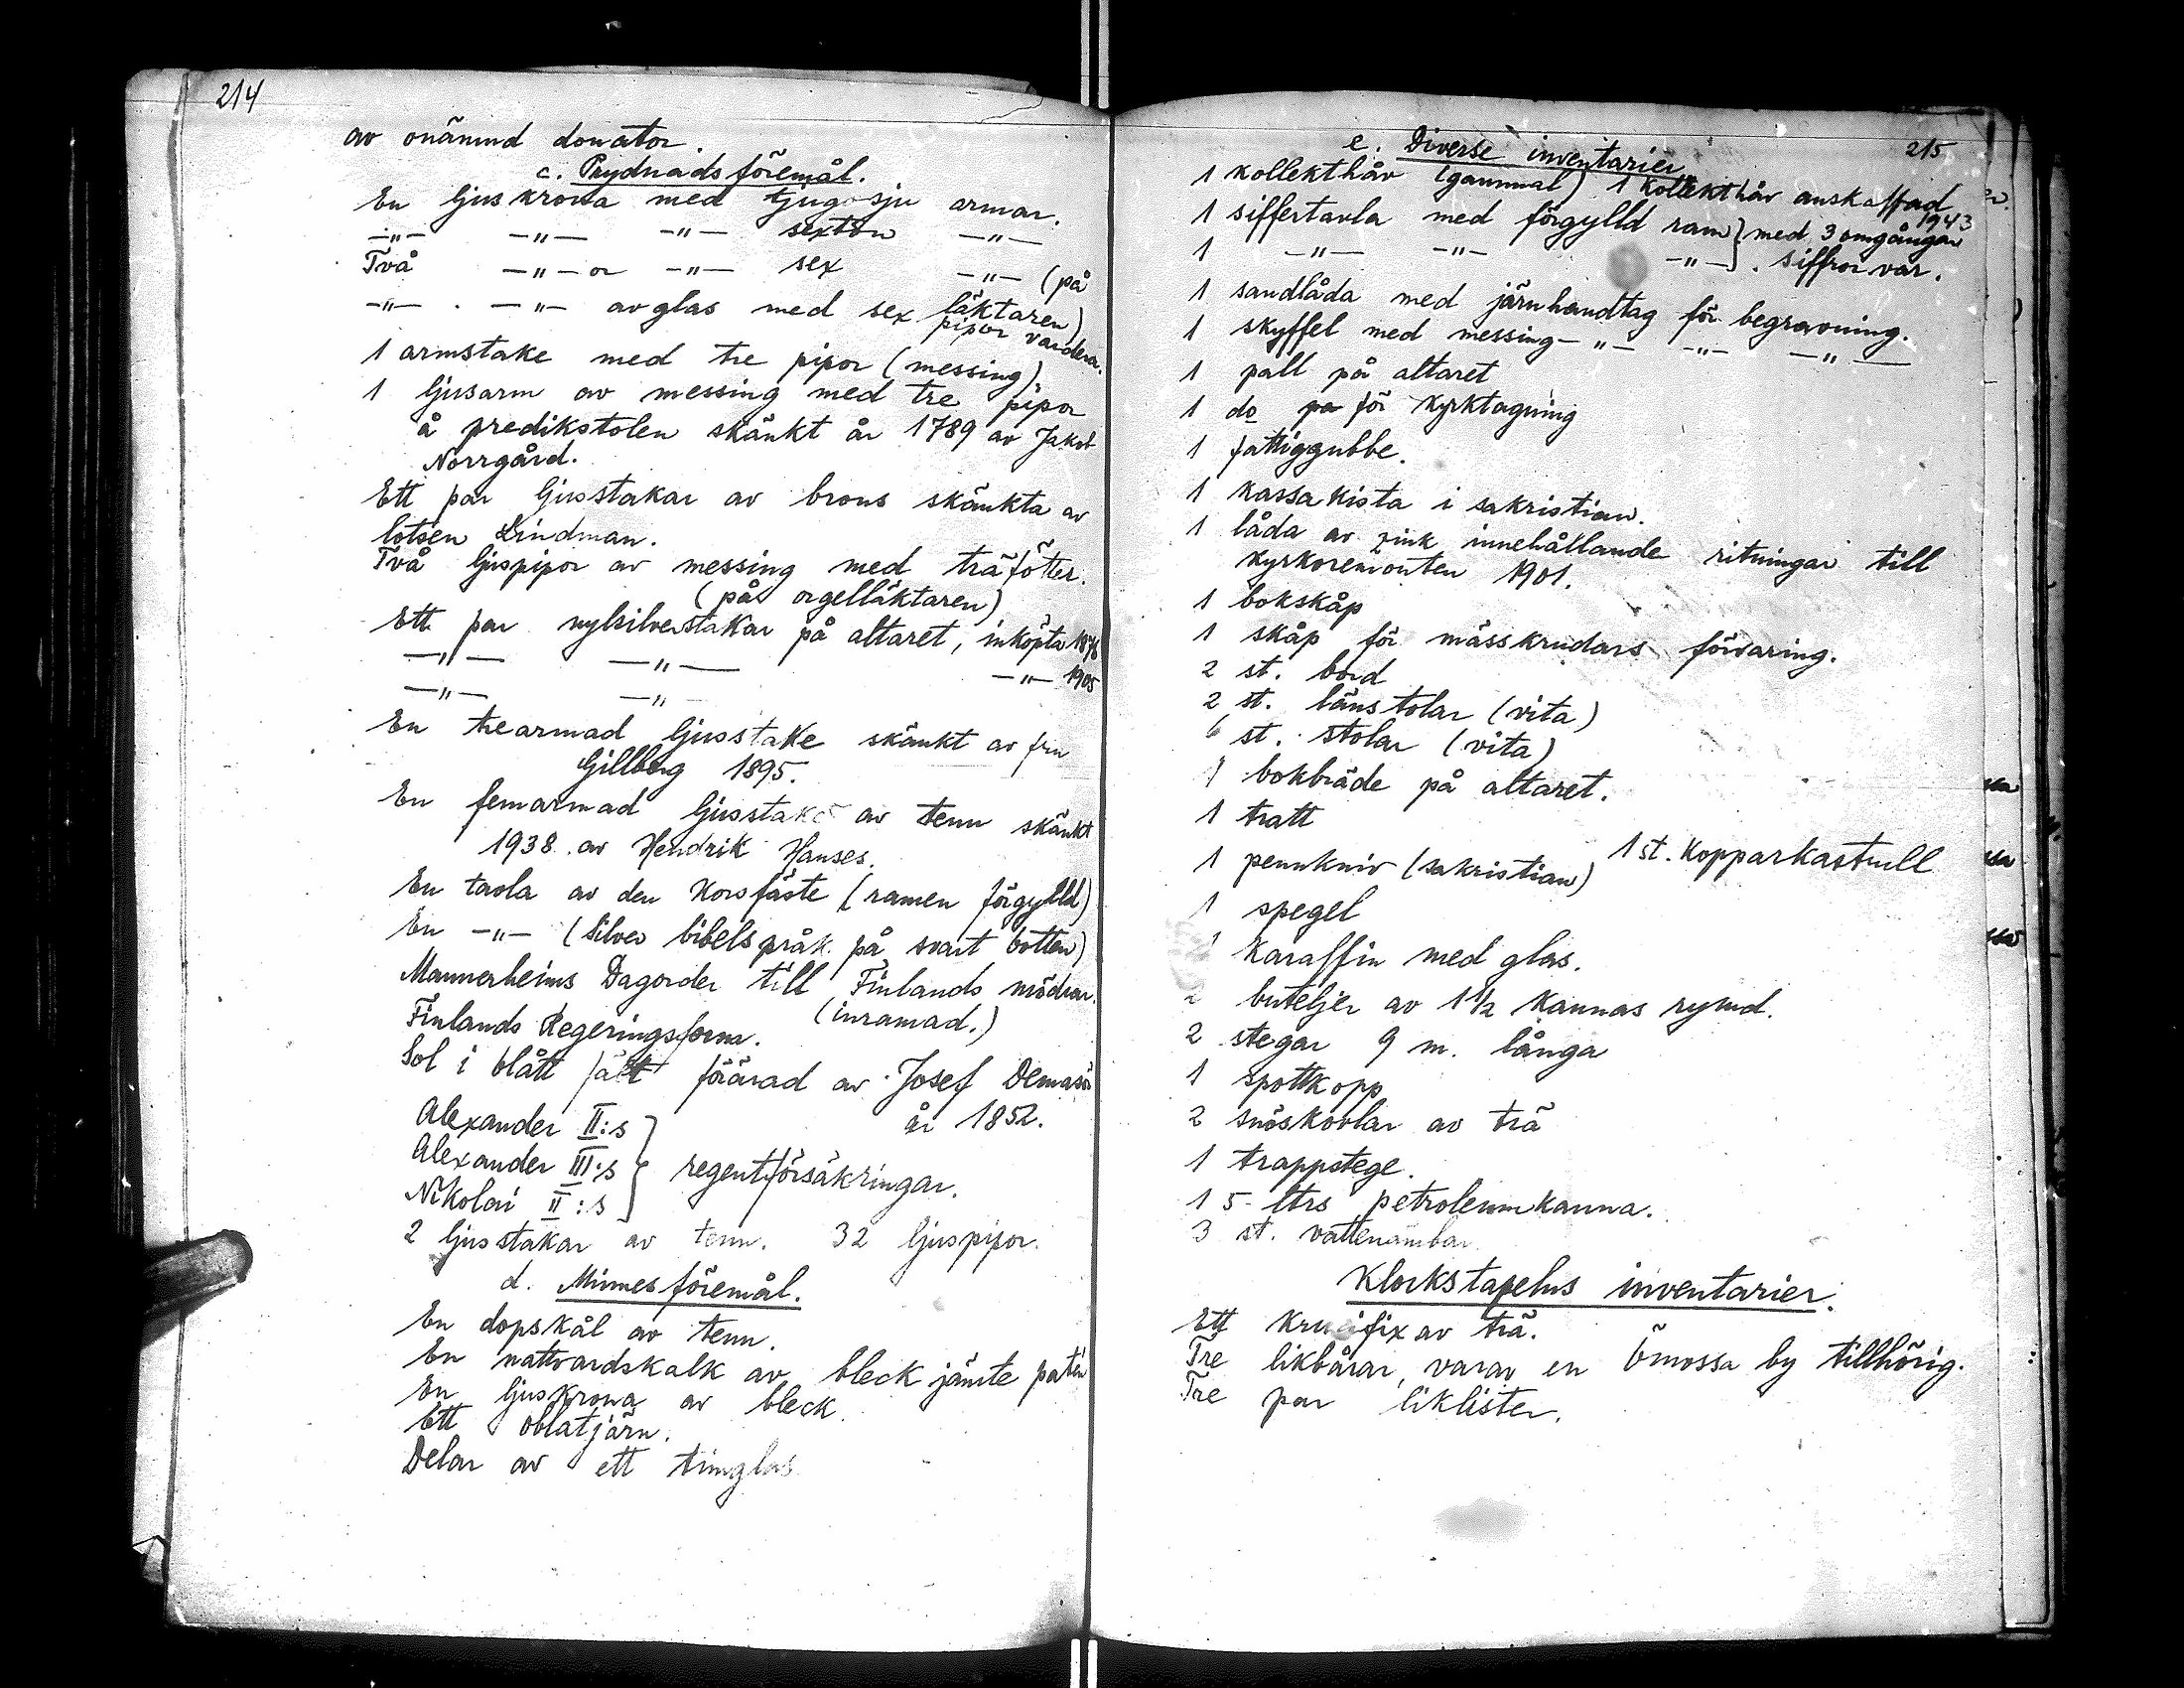 214
av onämnd donator.
c. Prydnadsföremål.
En ljuskrona med tjugosju armar.
—"— —"— —"— sexton —"—
Två —"— or —"— sex —"— (på
läktaren)
—"— . —"— av glas med sex pipor vardera.
1 armstake med tre pipor (messing)
1 ljusarm av messing med tre pipor
å predikstolen skänkt år 1789 av Jakob
Norrgård.
Ett par ljusstakar av brons skänkta av
lotsen Lindman.
Två ljuspipor av messing med träfötter.
(på orgelläktaren)
Ett par nysilverstakar på altaret, inköpta 1876
—"— —"— —"— 1905
—"— —"—
En trearmad ljusstake skänkt av fru
Gillberg 1895.
En femarmad ljusstake av tenn skänkt
1938 av Hendrik Hanses.
En tavla av den Korsfäste (ramen förgylld)
En —"— (silver bibelspråk på svart botten)
Mannerheims Dagorder till Finlands mödrar.
(inramad.)
Finlands Regeringsform.
Sol i blått fält förärad av Josef
år 1852.
Alexander II:s
Alexander III:s } regentförsäkringar.
Nikolai II:s
2 ljusstakar av tenn. 32 ljuspipor.
d. Minnesföremål.
En dopskål av tenn.
En nattvardskalk av bleck jämte paten
En ljuskrona av bleck.
Ett oblatjärn.
Delar av ett timglas
215
e. Diverse inventarier
1 kollekthåv (gammal) 1 kollekthåv anskaffad
1943
1 siffertavla med förgylld ram } med 3 omgångar
1 —"— —"— —"— . siffror var.
1 sandlåda med järnhandtag för begravning.
1 skyffel med messing —"— —"— —"—
1 pall på altaret
1 do på för Kyrktagning
1 fattiggubbe.
1 Kassakista i sakristian.
1 låda av zink innehållande ritningar till
Kyrkoremonten 1901.
1 bokskåp
1 skåp för mässkrudars förvaring.
2 st. bord
2 st. länstolar (vita)
6 st. stolar (vita)
1 bokbräde på altaret.
1 tratt
1 pennkniv (sakristian) 1 st. Kopparkastrull
1 spegel
1 Karaffin med glas.
2 buteljer av 1 1/2 Kannas rymd.
2 stegar 9 m. långa
1 spottkopp
2 snöskovlar av trä
1 trappstege.
1 5-ltrs petroleumkanna.
3 st. vattenämbar
Klockstapelns inventarier.
Ett Krucifix av trä.
Tre likbårar, varav en Ömossa by tillhörig.
Tre par liklister.